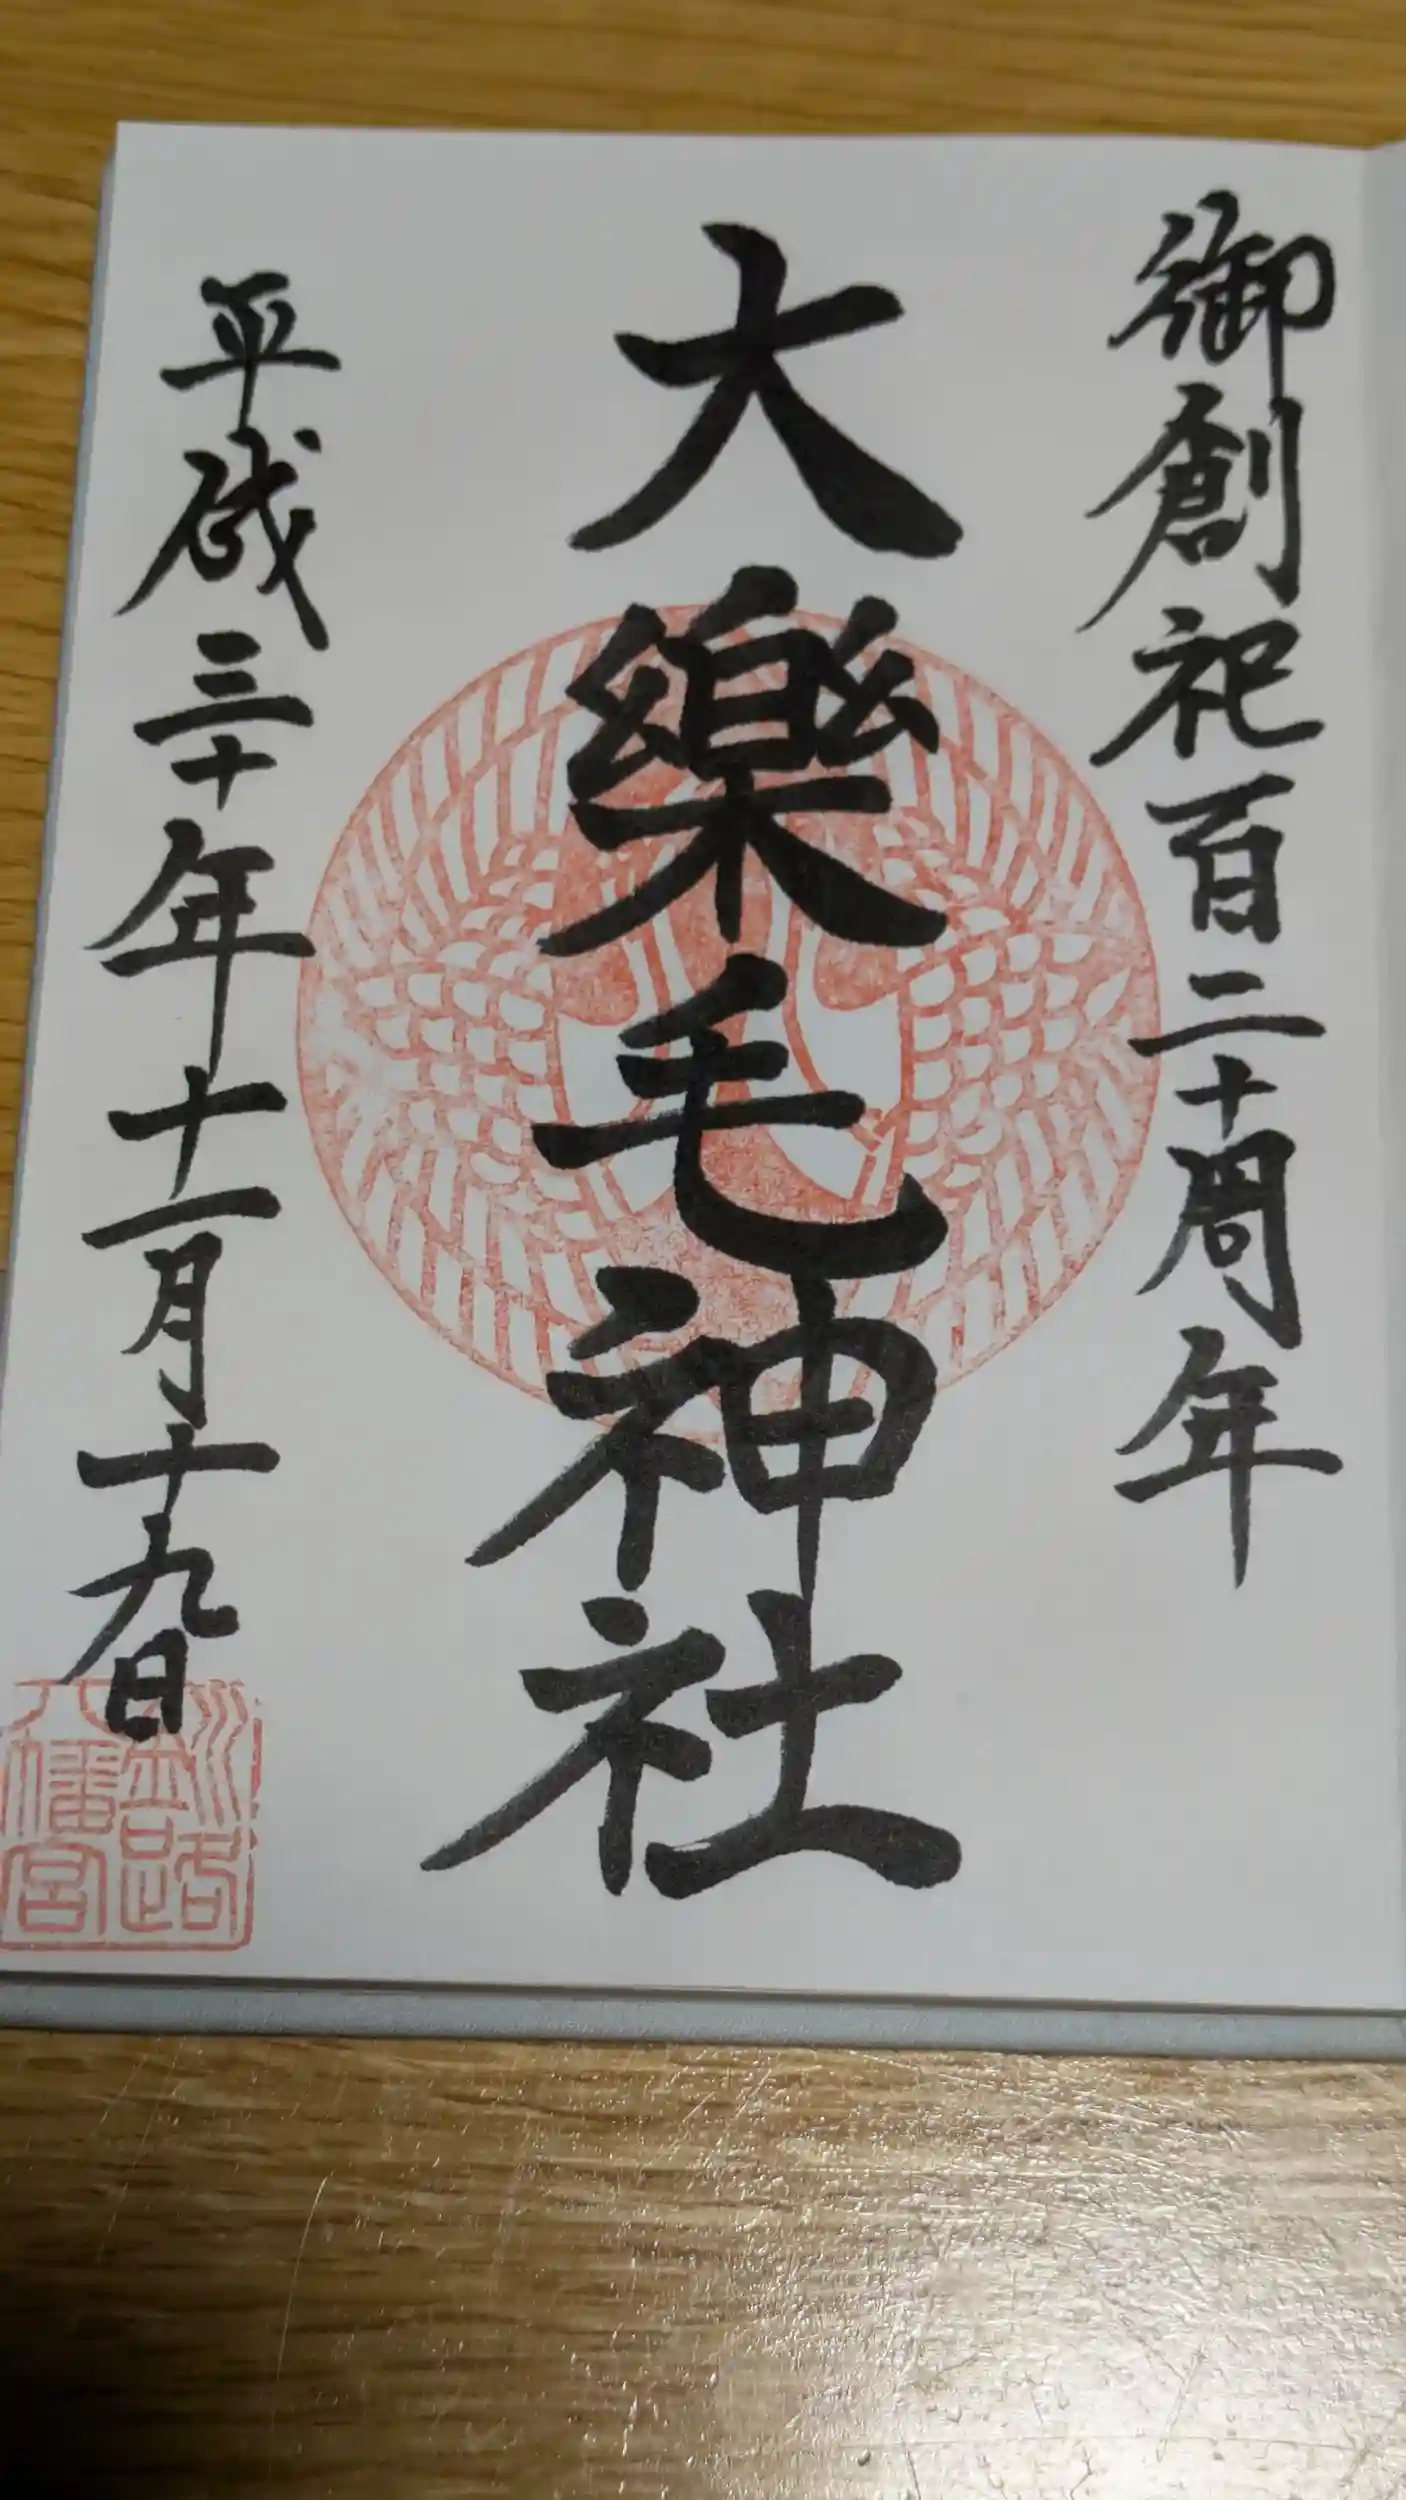 御創祀百二十周年
大樂毛神社
平成三十年十一月十九日
釧路
八幡宮